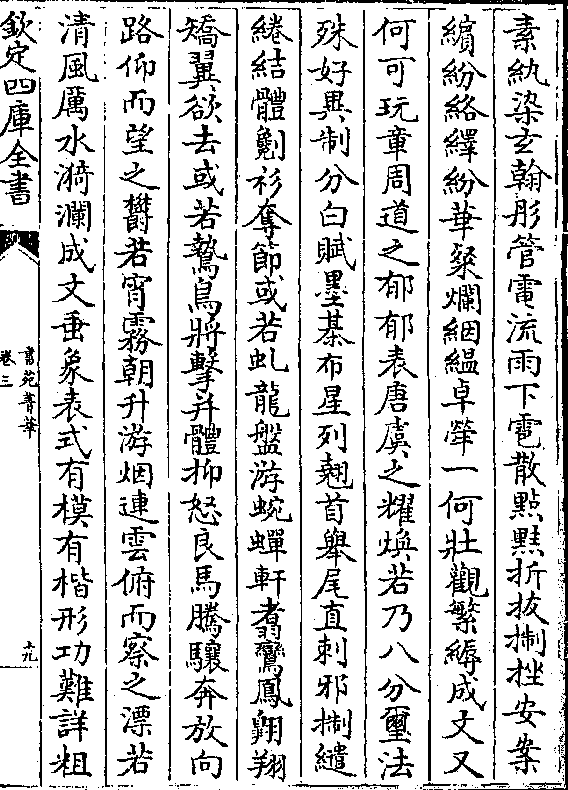 素紈染玄翰彤管電流雨下雹散點䵻折拔掣挫安案
繽紛絡繹紛華粲爛絪緼卓犖一何壯觀繁縟成文又
何可玩章周道之郁郁表唐虞之耀煥若乃八分璽法
殊好異制分白賦墨棊布星列翹首舉尾直刺邪掣繾
綣結體劖衫奪節或若虬龍盤游蜿蟬軒翥鸞鳳翺翔
矯翼欲去或若鷙鳥將擊并體抑怒良馬騰驤奔放向
路仰而望之欝若宵霧朝升游烟連雲俯而察之漂若
清風厲水漪瀾成文垂象表式有模有楷形功難詳粗
欽定四庫全書
書苑菁華
卷三
十九